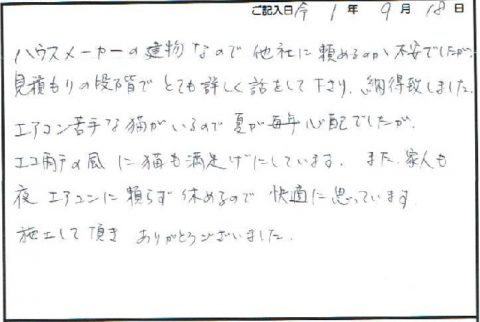 ご記入日 令 1 年 9 月 18 日
ハウスメーカーの建物なので他社に頼めるのか不安でしたが、
見積もりの段階でとても詳しく話をして下さり、納得致しました。
エアコン苦手な猫がいるので夏が毎年心配でしたが、
エコ雨戸の風に猫も満足げにしています。また、家人も
夜エアコンに頼らず休めるので快適に思っています。
施工して頂きありがとうございました。